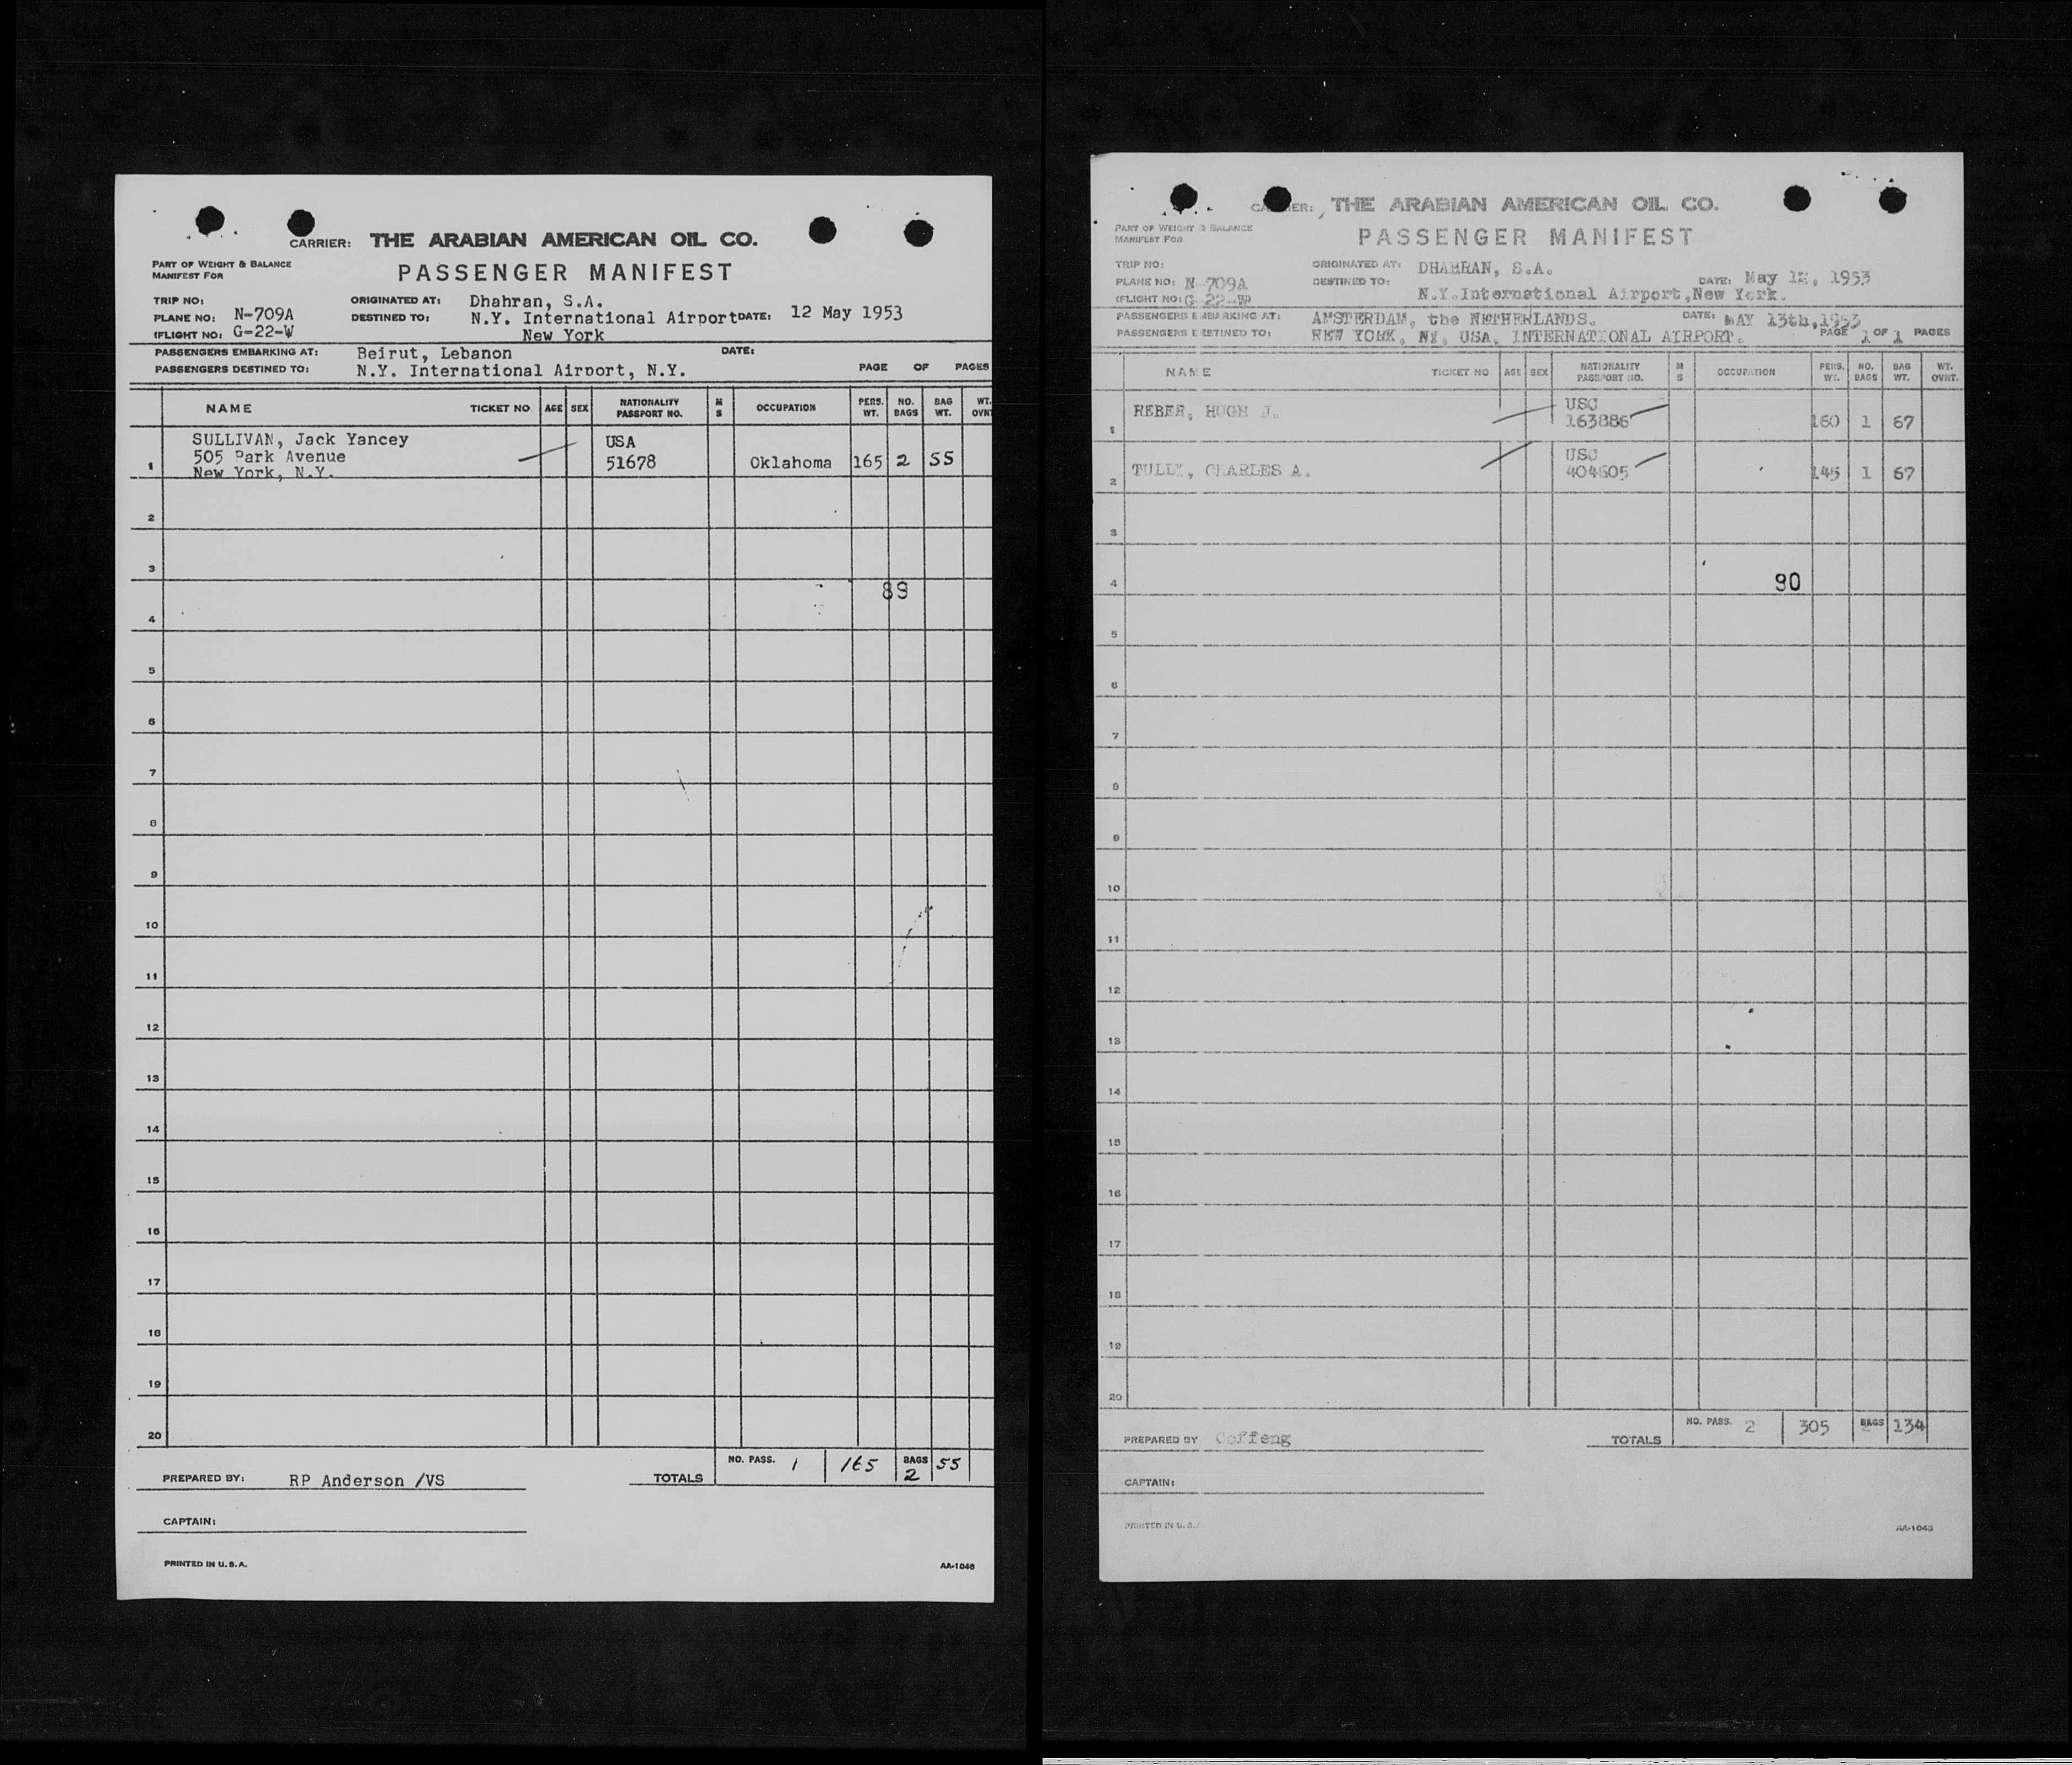 CARRIER: THE ARABIAN AMERICAN OIL CO.
PART OF WEIGHT & BALANCE
MANIFEST FOR
PASSENGER MANIFEST
TRIP NO:
ORIGINATED AT: Dhahran, S.A.
PLANE NO: N-709A
DESTINED TO: N.Y. International Airport DATE: 12 May 1953
(FLIGHT NO: G-22-W
New York
PASSENGERS EMBARKING AT: Beirut, Lebanon DATE:
PASSENGERS DESTINED TO: N.Y. International Airport, N.Y. PAGE OF PAGES
NAME TICKET NO. AGE SEX NATIONALITY PASSPORT NO. M S OCCUPATION PERS. WT. NO. BAGS BAG WT. WT. OVNT
SULLIVAN, Jack Yancey USA
505 Park Avenue
1 New York, N.Y. 51678 Oklahoma 165 2 55
2
3
89
4
5
6
7
8
9
10
11
12
13
14
15
16
17
18
19
20
NO. PASS. 1 165 BAGS 2 55
PREPARED BY: RP Anderson /VS TOTALS
CAPTAIN:
PRINTED IN U.S.A. AA-1046
THE ARABIAN AMERICAN OIL CO.
PART OF WEIGHT & BALANCE
MANIFEST FOR
PASSENGER MANIFEST
TRIP NO:
ORIGINATED AT: DHAHRAN, S.A.
PLANE NO: N-709A
DESTINED TO: DATE: May 12, 1953
(FLIGHT NO: G-22-W
N.Y.International Airport,New York.
PASSENGERS EMBARKING AT: AMSTERDAM, the NETHERLANDS. DATE: MAY 13th,1953
PASSENGERS DESTINED TO: NEW YORK, NY, USA, INTERNATIONAL AIRPORT. PAGE 1 OF 1 PAGES
NAME TICKET NO. AGE SEX NATIONALITY PASSPORT NO. M S OCCUPATION PERS. WT. NO. BAGS BAG WT. WT. OVNT.
USC
1 REBER, HUGH J. 163886 160 1 67
USC
2 TULLY, CHARLES A. 404605 145 1 67
3
4
90
5
6
7
8
9
10
11
12
13
14
15
16
17
18
19
20
NO. PASS. 2 305 BAGS 134
PREPARED BY Coffeng TOTALS
CAPTAIN:
PRINTED IN U.S.A.